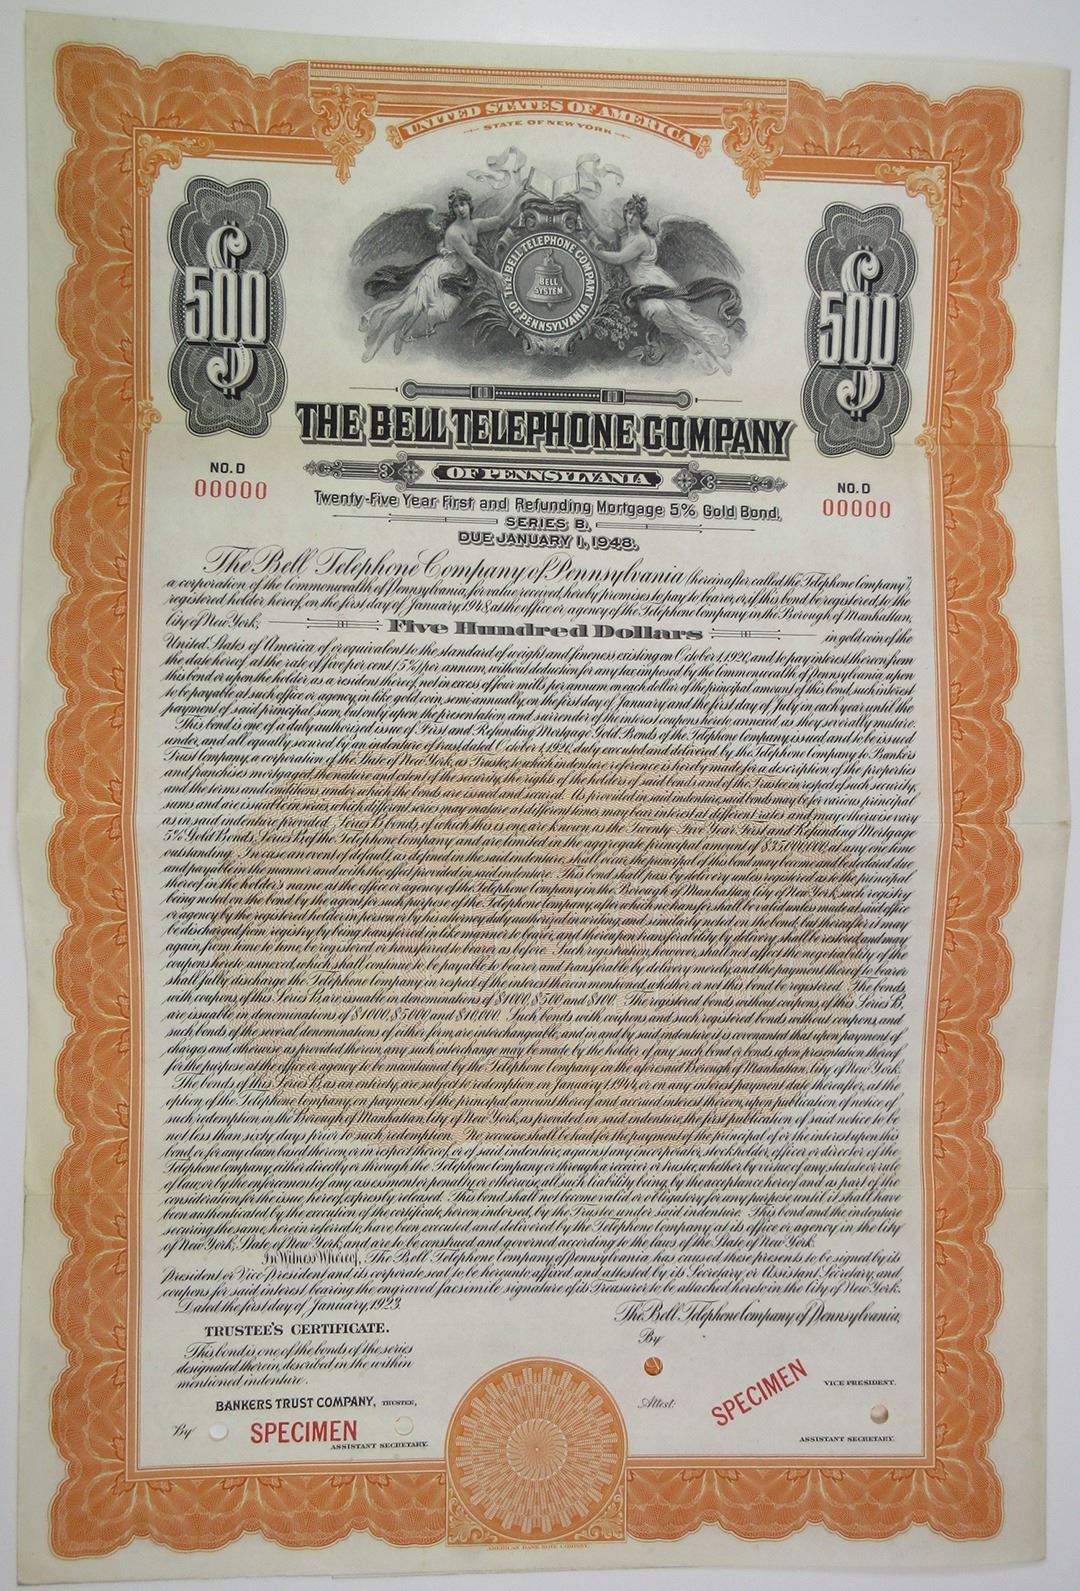 UNITED STATES OF AMERICA
STATE OF NEW YORK
$500
$500
THE BELL TELEPHONE COMPANY OF PENNSYLVANIA
BELL SYSTEM
THE BELL TELEPHONE COMPANY
OF PENNSYLVANIA
NO. D
00000
NO. D
00000
Twenty-Five Year First and Refunding Mortgage 5% Gold Bond,
SERIES B,
DUE JANUARY 1, 1948.
The Bell Telephone Company of Pennsylvania (hereinafter called the "Telephone Company"),
a corporation of the Commonwealth of Pennsylvania, for value received, hereby promises to pay to bearer, or, if this bond be registered, to the
registered holder hereof, on the first day of January, 1948, at the office or agency of the Telephone Company in the Borough of Manhattan,
City of New York, Five Hundred Dollars in gold coin of the
United States of America of or equivalent to the standard of weight and fineness existing on October 1, 1920, and to pay interest thereon from
the date hereof at the rate of five per cent. (5%) per annum, without deduction for any tax imposed by the Commonwealth of Pennsylvania upon
this bond or upon the holder as a resident thereof, not in excess of four mills per annum on each dollar of the principal amount of this bond, such interest
to be payable at such office or agency, in like gold coin, semi-annually, on the first day of January and the first day of July in each year until the
payment of said principal sum, but only upon the presentation and surrender of the interest coupons hereto annexed as they severally mature.
This bond is one of a duly authorized issue of First and Refunding Mortgage Gold Bonds of the Telephone Company, issued and to be issued
under, and all equally secured by an indenture of trust, dated October 1, 1920, duly executed and delivered by the Telephone Company to Bankers
Trust Company, a corporation of the State of New York, as Trustee, to which indenture reference is hereby made for a description of the properties
and franchises mortgaged, the nature and extent of the security, the rights of the holders of said bonds and of the Trustee in respect of such security,
and the terms and conditions under which the bonds are issued and secured. As provided in said indenture, said bonds may be for various principal
sums and are issuable in series, which different series may mature at different times, may bear interest at different rates and may otherwise vary
as in said indenture provided. Series B bonds, of which this is one, are known as the Twenty-Five Year First and Refunding Mortgage
5% Gold Bonds, Series B, of the Telephone Company and are limited in the aggregate principal amount of $35,000,000, at any one time
outstanding. In case an event of default, as defined in the said indenture, shall occur, the principal of this bond may become and be declared due
and payable in the manner and with the effect provided in said indenture. This bond shall pass by delivery unless registered as to the principal
thereof in the holder's name at the office or agency of the Telephone Company in the Borough of Manhattan, City of New York, such registry
being noted on the bond by the agent for such purpose of the Telephone Company, after which no transfer shall be valid unless made at said office
or agency by the registered holder in person or by his attorney duly authorized in writing, and similarly noted on the bond; but thereafter it may
be discharged from registry by being transferred in like manner to bearer, and thereupon transferability by delivery shall be restored; and may
again, from time to time, be registered or transferred to bearer as before. Such registration, however, shall not affect the negotiability of the
coupons hereto annexed, which shall continue to be payable to bearer and transferable by delivery merely, and the payment thereof to bearer
shall fully discharge the Telephone Company in respect of the interest therein mentioned, whether or not this bond be registered. The bonds
with coupons, of this Series B, are issuable in denominations of $1000, $500 and $100. The registered bonds without coupons, of this Series B,
are issuable in denominations of $1000, $5000 and $10,000. Such bonds with coupons and such registered bonds without coupons, and
such bonds of the several denominations of either form, are interchangeable, and in and by said indenture it is covenanted that upon payment of
charges and otherwise as provided therein, any such interchange may be made by the holder of any such bond or bonds upon presentation thereof
for the purpose at the office or agency to be maintained by the Telephone Company in the aforesaid Borough of Manhattan, City of New York.
The bonds of this Series B, as an entirety, are subject to redemption on January 1, 1944, or on any interest payment date thereafter, at the
option of the Telephone Company, on payment of the principal amount thereof and accrued interest thereon, upon publication of notice of
such redemption in the Borough of Manhattan, City of New York, as provided in said indenture, the first publication of said notice to be
not less than sixty days prior to such redemption. No recourse shall be had for the payment of the principal of or the interest upon this
bond, or for any claim based thereon, or in respect thereof, or of said indenture, against any incorporator, stockholder, officer or director of the
Telephone Company, either directly or through the Telephone Company or through a receiver or trustee, whether by virtue of any statute or rule
of law, or by the enforcement of any assessment or penalty or otherwise, all such liability being, by the acceptance hereof and as part of the
consideration for the issue hereof, expressly released. This bond shall not become valid or obligatory for any purpose until it shall have
been authenticated by the execution of the certificate, hereon indorsed, by the Trustee under said indenture. This bond and the indenture
securing the same, herein referred to, have been executed and delivered by the Telephone Company at its office or agency in the City
of New York, State of New York, and are to be construed and governed according to the laws of the State of New York.
In Witness Whereof, The Bell Telephone Company of Pennsylvania has caused these presents to be signed by its
President or Vice President and its corporate seal to be hereunto affixed and attested by its Secretary or Assistant Secretary, and
coupons for said interest bearing the engraved facsimile signature of its Treasurer to be attached hereto, in the City of New York.
Dated the first day of January, 1923.
The Bell Telephone Company of Pennsylvania,
By
TRUSTEE'S CERTIFICATE.
This bond is one of the bonds of the series
designated therein, described in the within
mentioned indenture.
VICE PRESIDENT.
BANKERS TRUST COMPANY, TRUSTEE,
Attest:
SPECIMEN
By SPECIMEN
ASSISTANT SECRETARY.
ASSISTANT SECRETARY.
AMERICAN BANK NOTE COMPANY.